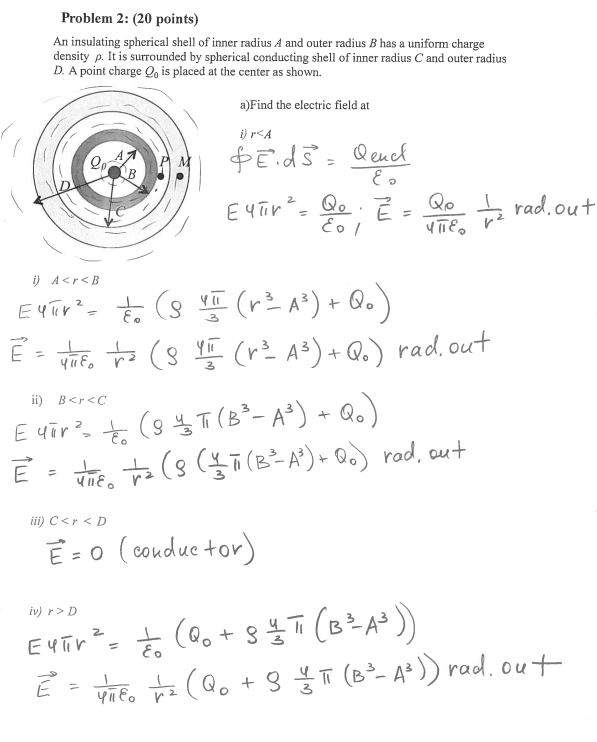 Problem 2: (20 points)
An insulating spherical shell of inner radius A and outer radius B has a uniform charge
density ρ. It is surrounded by spherical conducting shell of inner radius C and outer radius
D. A point charge Q₀ is placed at the center as shown.
a)Find the electric field at
i) r<A
∮E⃗·dS⃗ = Qencl/ε₀
E4πr² = Q₀/ε₀ ; E⃗ = Q₀/4πε₀ 1/r² rad. out
Q₀ A B P M
D C
i) A<r<B
E4πr² = 1/ε₀ (ρ 4π/3 (r³-A³) + Q₀)
E⃗ = 1/4πε₀ 1/r² (ρ 4π/3 (r³-A³)+Q₀) rad. out
ii) B<r<C
E4πr² = 1/ε₀ (ρ 4/3 π(B³-A³) + Q₀)
E⃗ = 1/4πε₀ 1/r² (ρ (4/3 π(B³-A³)+Q₀) rad. out
iii) C<r < D
E⃗ = 0 (conductor)
iv) r>D
E4πr² = 1/ε₀ (Q₀ + ρ 4/3 π (B³-A³))
E⃗ = 1/4πε₀ 1/r² (Q₀ + ρ 4/3 π (B³-A³)) rad. out